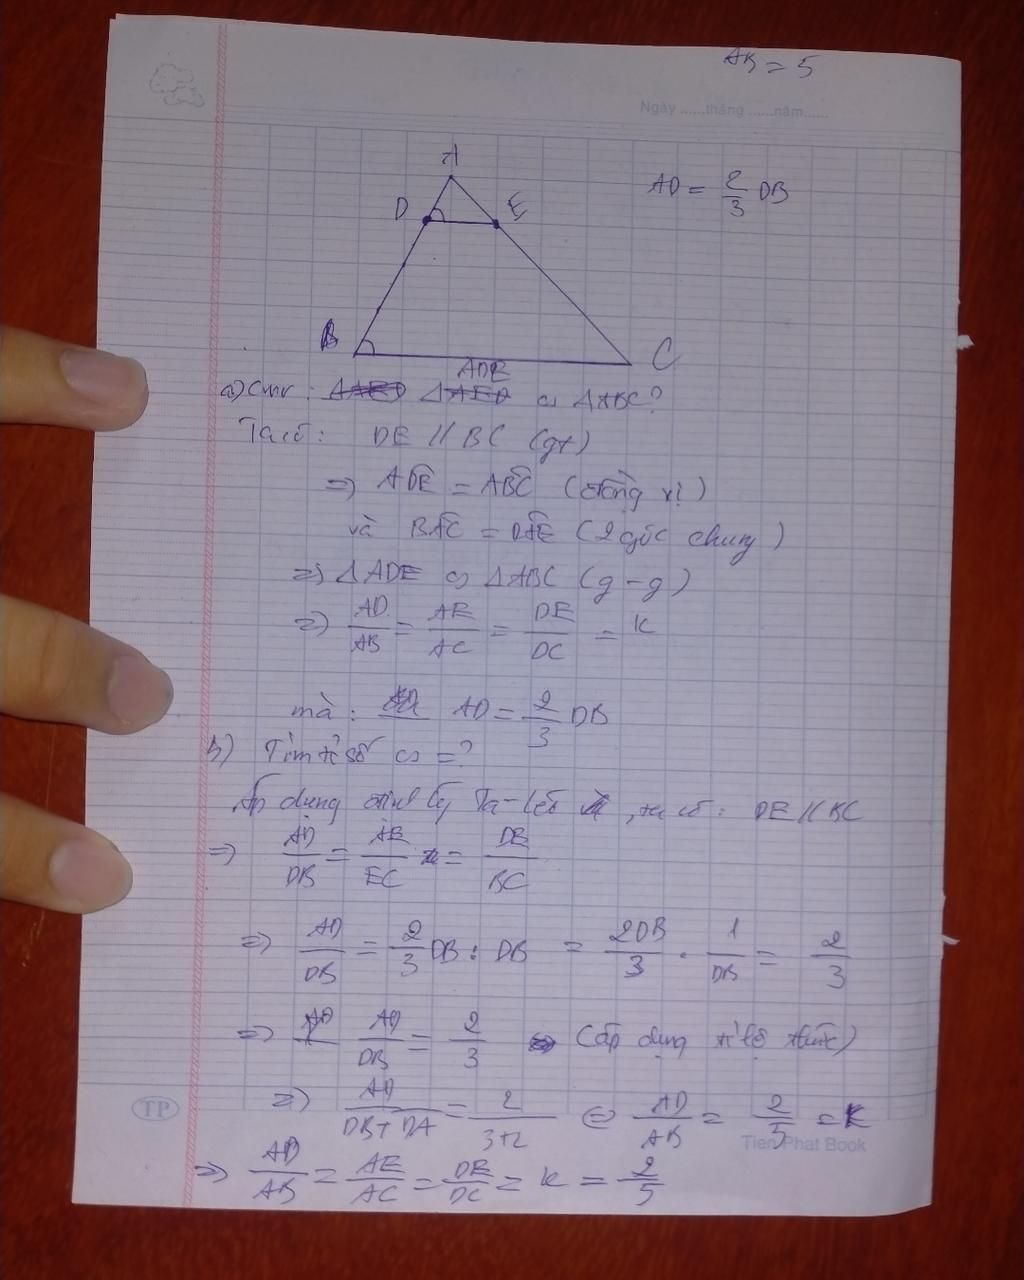 AB = 5
Ngày ......tháng ......năm......
A
AD = 2/3 DB
D E
B C
ADE
a) Cmr : ΔAED ΔAED ∽ ΔABC?
Ta có : DE // BC (gt)
=> ADE^ = ABC^ (đồng vị)
và BAC^ = DAE^ (2 góc chung)
=> ΔADE ∽ ΔABC (g-g)
=> AD/AB = AE/AC = DE/DC = k
mà : AD = 2/3 DB
b) Tìm tỉ số ∽ = ?
Áp dụng định lý Ta-lét , ta có : DE // BC
=> AD/DB = AE/EC = DE/BC
=> AD/DB = 2/3 DB : DB = 2DB/3 . 1/DB = 2/3
=> AD/DB = 2/3 (áp dụng tỉ lệ thức)
=> AD/DB+DA = 2/3+2 <=> AD/AB = 2/5 = k
TP Tien Phat Book
=> AD/AB = AE/AC = DE/DC = k = 2/5